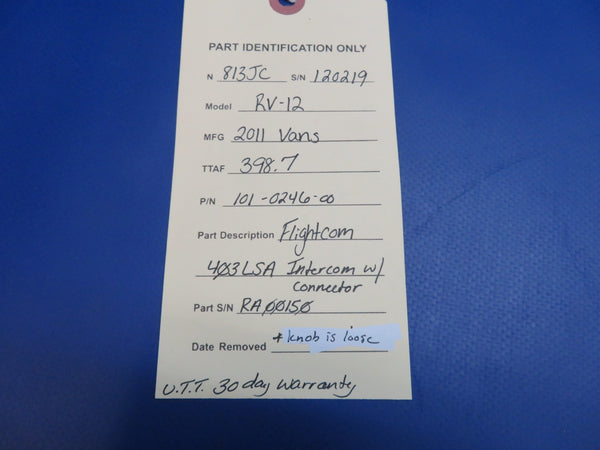 PART IDENTIFICATION ONLY
N 813JC S/N 120219
Model RV-12
MFG 2011 Vans
TTAF 398.7
P/N 101-0246-00
Part Description Flightcom
403 LSA Intercom w/
connector
Part S/N RA00150
Date Removed * knob is loose
U.T.T. 30 day warranty